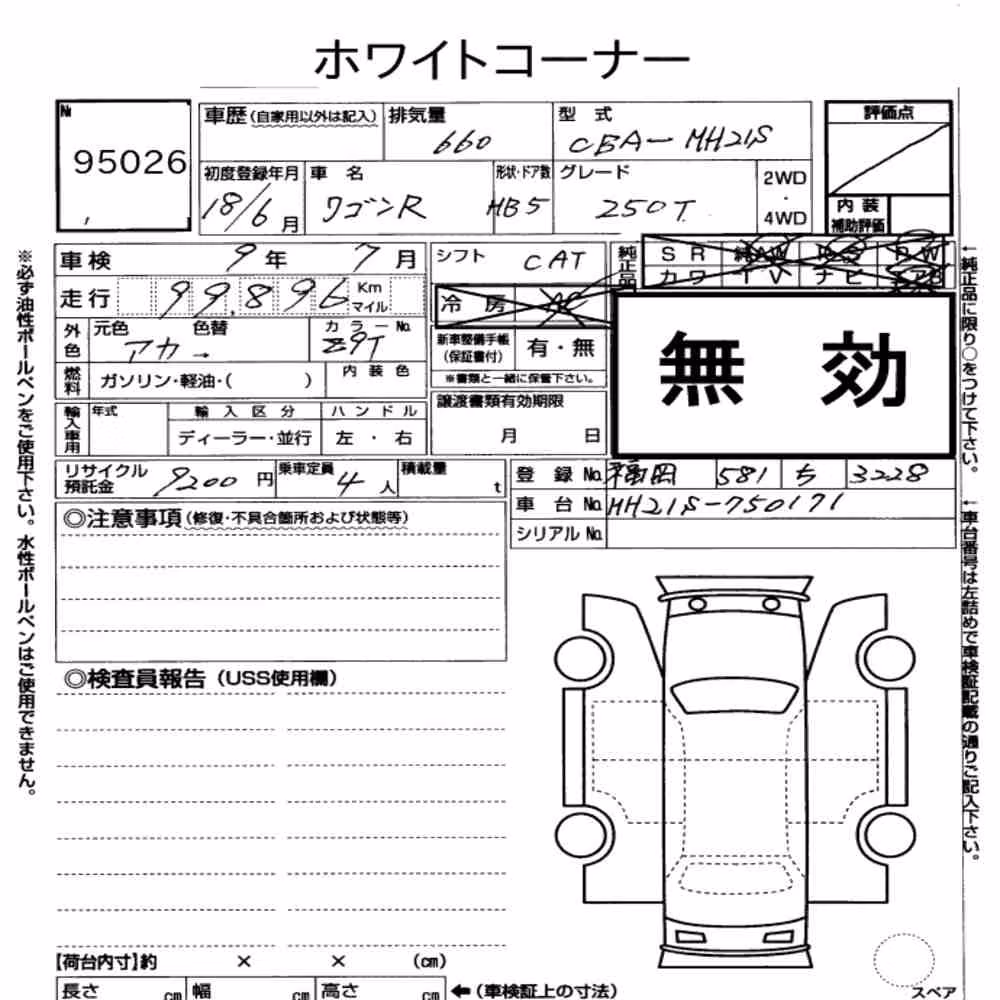 ホワイトコーナー
№ 95026
車歴 (自家用以外は記入) 排気量 660 型 式 CBA-MH21S 評価点
初度登録年月 18/6月 車 名 ワゴンR 形状・ドア数 HB5 グレード 250T 2WD・4WD 内装補助評価
車検 9年 7月 シフト CAT 純正品 S R
走行 99,896 Km マイル 冷 房 カワ T V ナビ
外色 元色 アカ 色替 → カラーNo. Z9T 新車整備手帳(保証書付) 有・無
無 効
燃料 ガソリン・軽油・( ) 内 装 色 ※書類と一緒に保管下さい。
輸入車用 年式 輸 入 区 分 ハ ン ド ル 譲渡書類有効期限
ディーラー・並行 左 ・ 右 月 日
リサイクル預託金 9200 円 乗車定員 4 人 積載量 t 登 録 No. 福岡 581 ち 3228
車 台 No. MH21S-750171
シリアル No.
◎注意事項 (修復・不具合箇所および状態等)
◎検査員報告 (USS使用欄)
【荷台内寸】約 × × (cm)
長さ cm 幅 cm 高さ cm ←(車検証上の寸法)
スペア
※必ず油性ボールペンをご使用下さい。水性ボールペンはご使用できません。
←純正品に限り○をつけて下さい。
←車台番号は左詰めで車検証記載の通りご記入下さい。